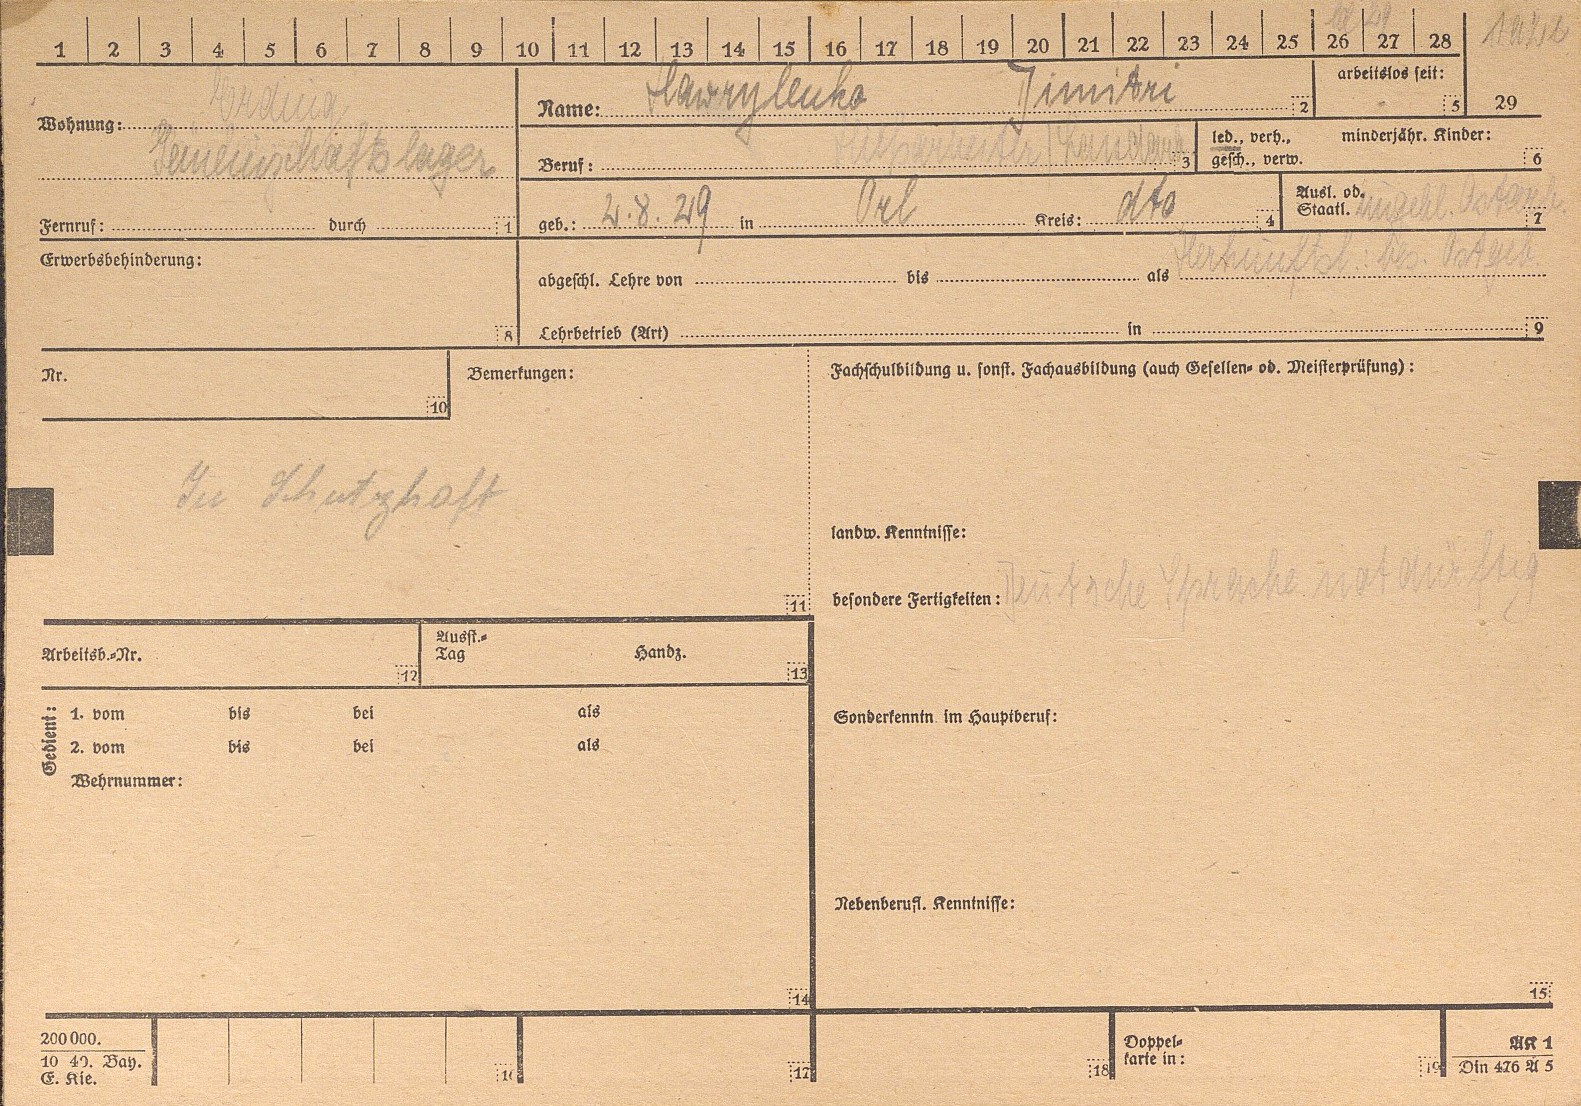 1 2 3 4 5 6 7 8 9 10 11 12 13 14 15 16 17 18 19 20 21 22 23 24 25 26 27 28
Erding
Wohnung:
Gemeinschaftslager
Fernruf: durch 1
Name: Hawrylenko Dimitri 2
arbeitslos seit: 5
29
Beruf: Hilfsarbeiter 3
led., verh., gesch., verw.
minderjähr. Kinder: 6
geb.: 2.8.29 in Orl Kreis: dto 4
Ausl. od. Staatl. 7
Herkunftsl.: bes. Ostgeb.
Erwerbsbehinderung: 8
abgeschl. Lehre von bis als
Lehrbetrieb (Art) in 9
Nr. 10
Bemerkungen:
In Schutzhaft
11
Fachschulbildung u. sonst. Fachausbildung (auch Gesellen- od. Meisterprüfung):
landw. Kenntnisse:
besondere Fertigkeiten: Deutsche Sprache notdürftig
Arbeitsb.-Nr. 12
Ausst.-Tag Handz. 13
Gedient:
1. vom bis bei als
2. vom bis bei als
Wehrnummer:
14
Sonderkenntn. im Hauptberuf:
Nebenberufl. Kenntnisse:
15
200 000.
10 40. Bay.
E. Kie.
16 17 18
Doppel-
karte in: 19
AK 1
Din 476 A 5